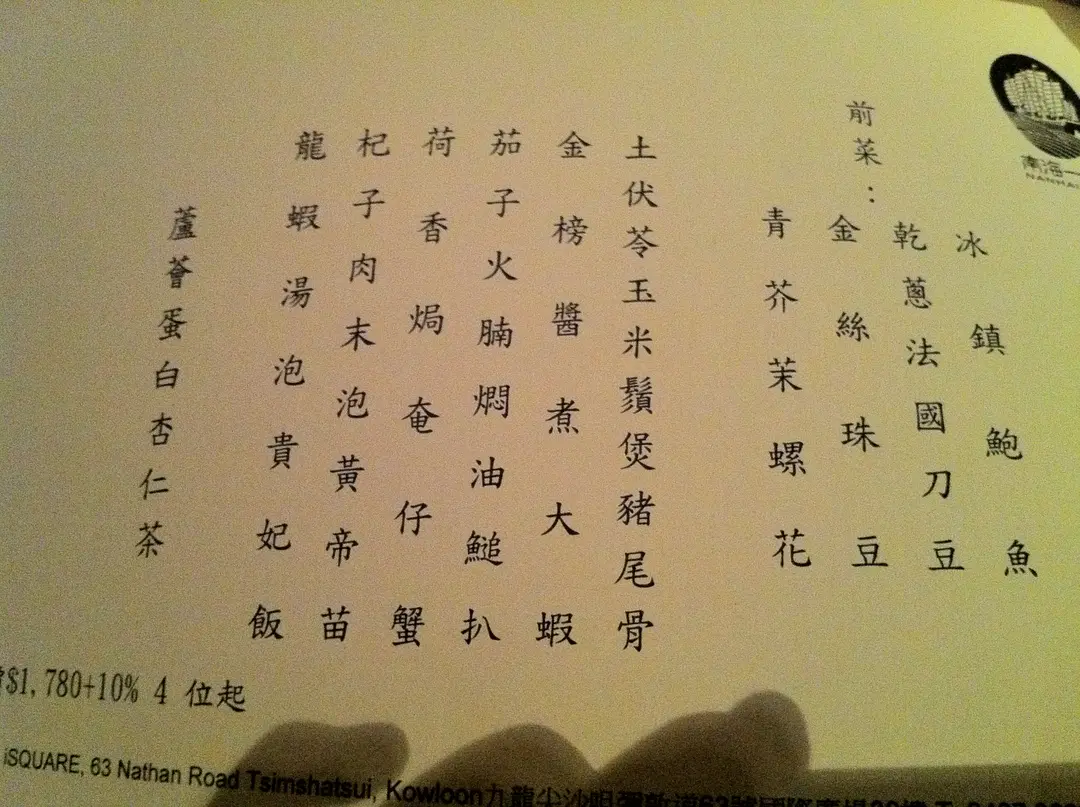 南海一
NANHAI
前菜：
冰鎮鮑魚
乾蔥法國刀豆
金絲珠豆
青芥茉螺花
土伏苓玉米鬚煲豬尾骨
金榜醬煮大蝦
茄子火腩燜油鎚扒
荷香焗奄仔蟹
杞子肉末泡黃帝苗
龍蝦湯泡貴妃飯
蘆薈蛋白杏仁茶
$1,780+10% 4 位起
iSQUARE, 63 Nathan Road Tsimshatsui, Kowloon九龍尖沙咀彌敦道63號國際廣場